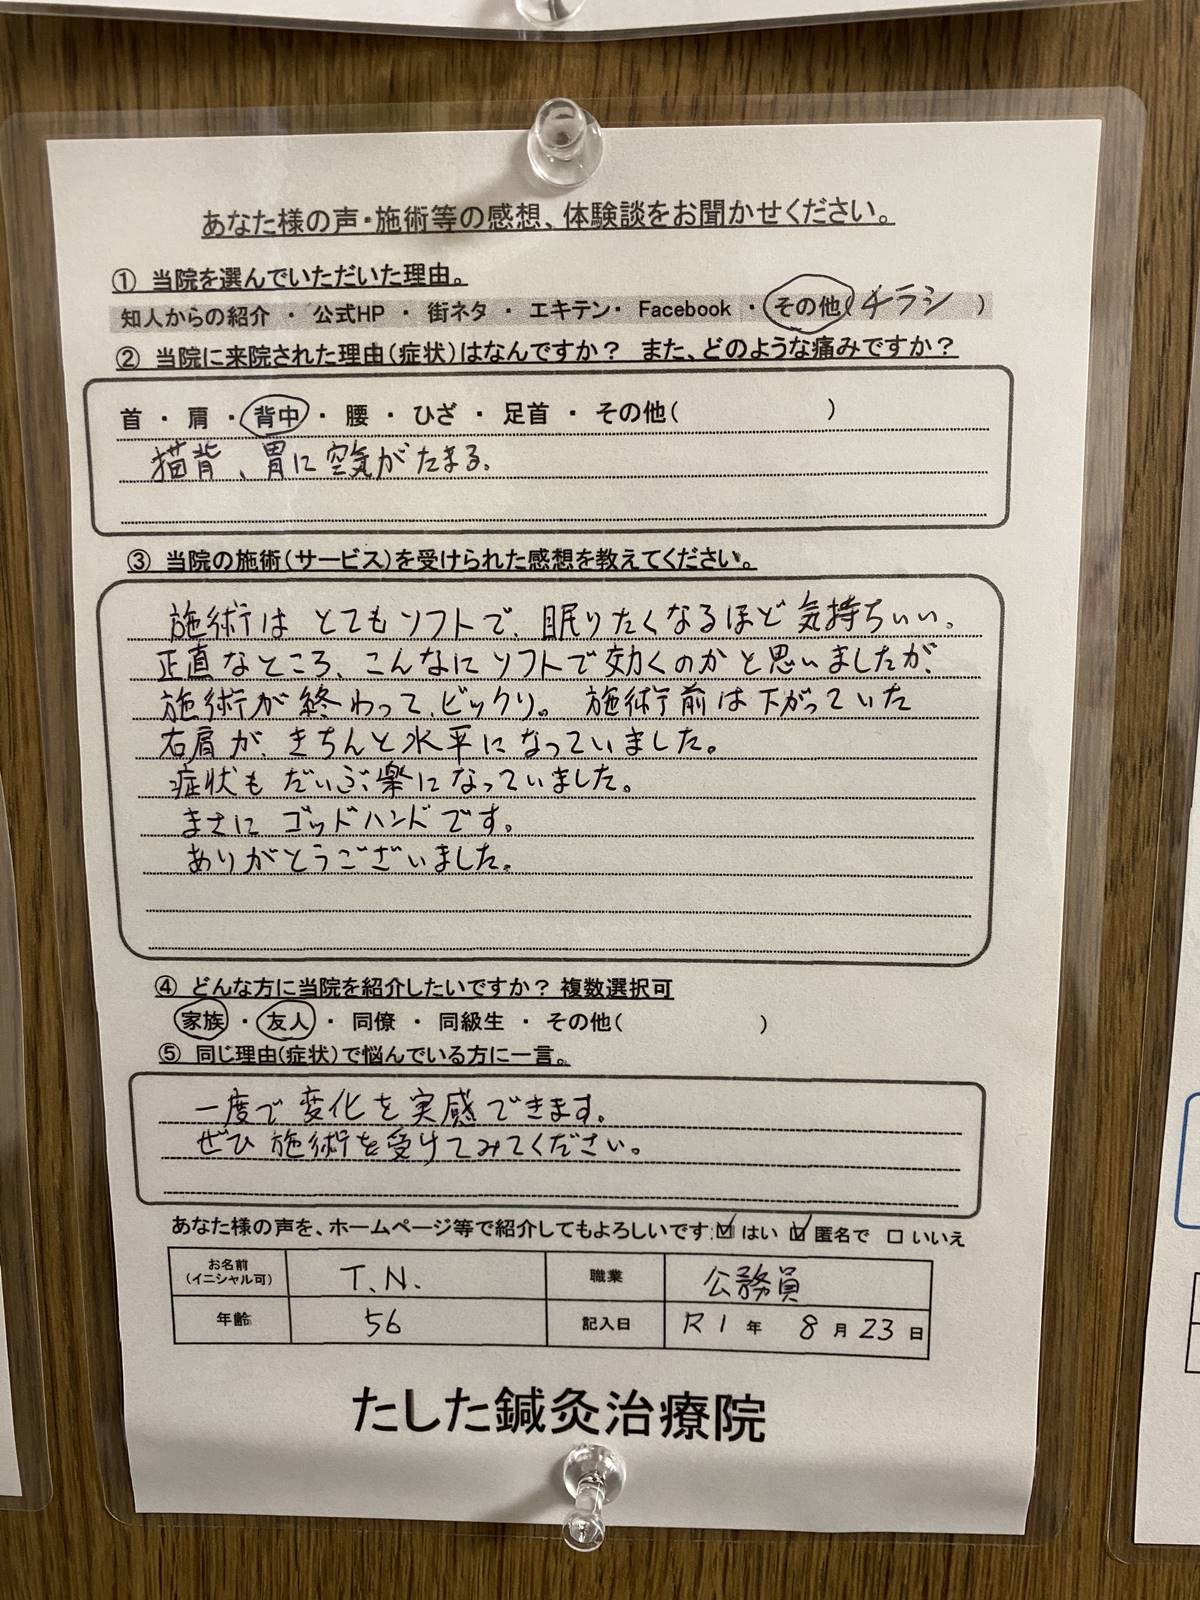 あなた様の声・施術等の感想、体験談をお聞かせください。
① 当院を選んでいただいた理由。
知人からの紹介 ・ 公式HP ・ 街ネタ ・ エキテン・ Facebook ・ その他(チラシ )
② 当院に来院された理由(症状)はなんですか? また、どのような痛みですか?
首 ・ 肩 ・ 背中 ・ 腰 ・ ひざ ・ 足首 ・ その他( )
猫背、胃に空気がたまる。
③ 当院の施術(サービス)を受けられた感想を教えてください。
施術は とてもソフトで、眠りたくなるほど 気持ちいい。
正直なところ、こんなにソフトで効くのかと思いましたが、
施術が終わって、ビックリ。 施術前は下がっていた
右肩が、きちんと水平になっていました。
症状も だいぶ楽になっていました。
まさに ゴッドハンドです。
ありがとうございました。
④ どんな方に当院を紹介したいですか? 複数選択可
家族 ・ 友人 ・ 同僚 ・ 同級生 ・ その他( )
⑤ 同じ理由(症状)で悩んでいる方に一言。
一度で変化を実感できます。
ぜひ施術を受けてみてください。
あなた様の声を、ホームページ等で紹介してもよろしいです:☑ はい ☑ 匿名で □ いいえ
お名前(イニシャル可) T.N. 職業 公務員
年齢 56 記入日 R1年 8月23日
たした鍼灸治療院